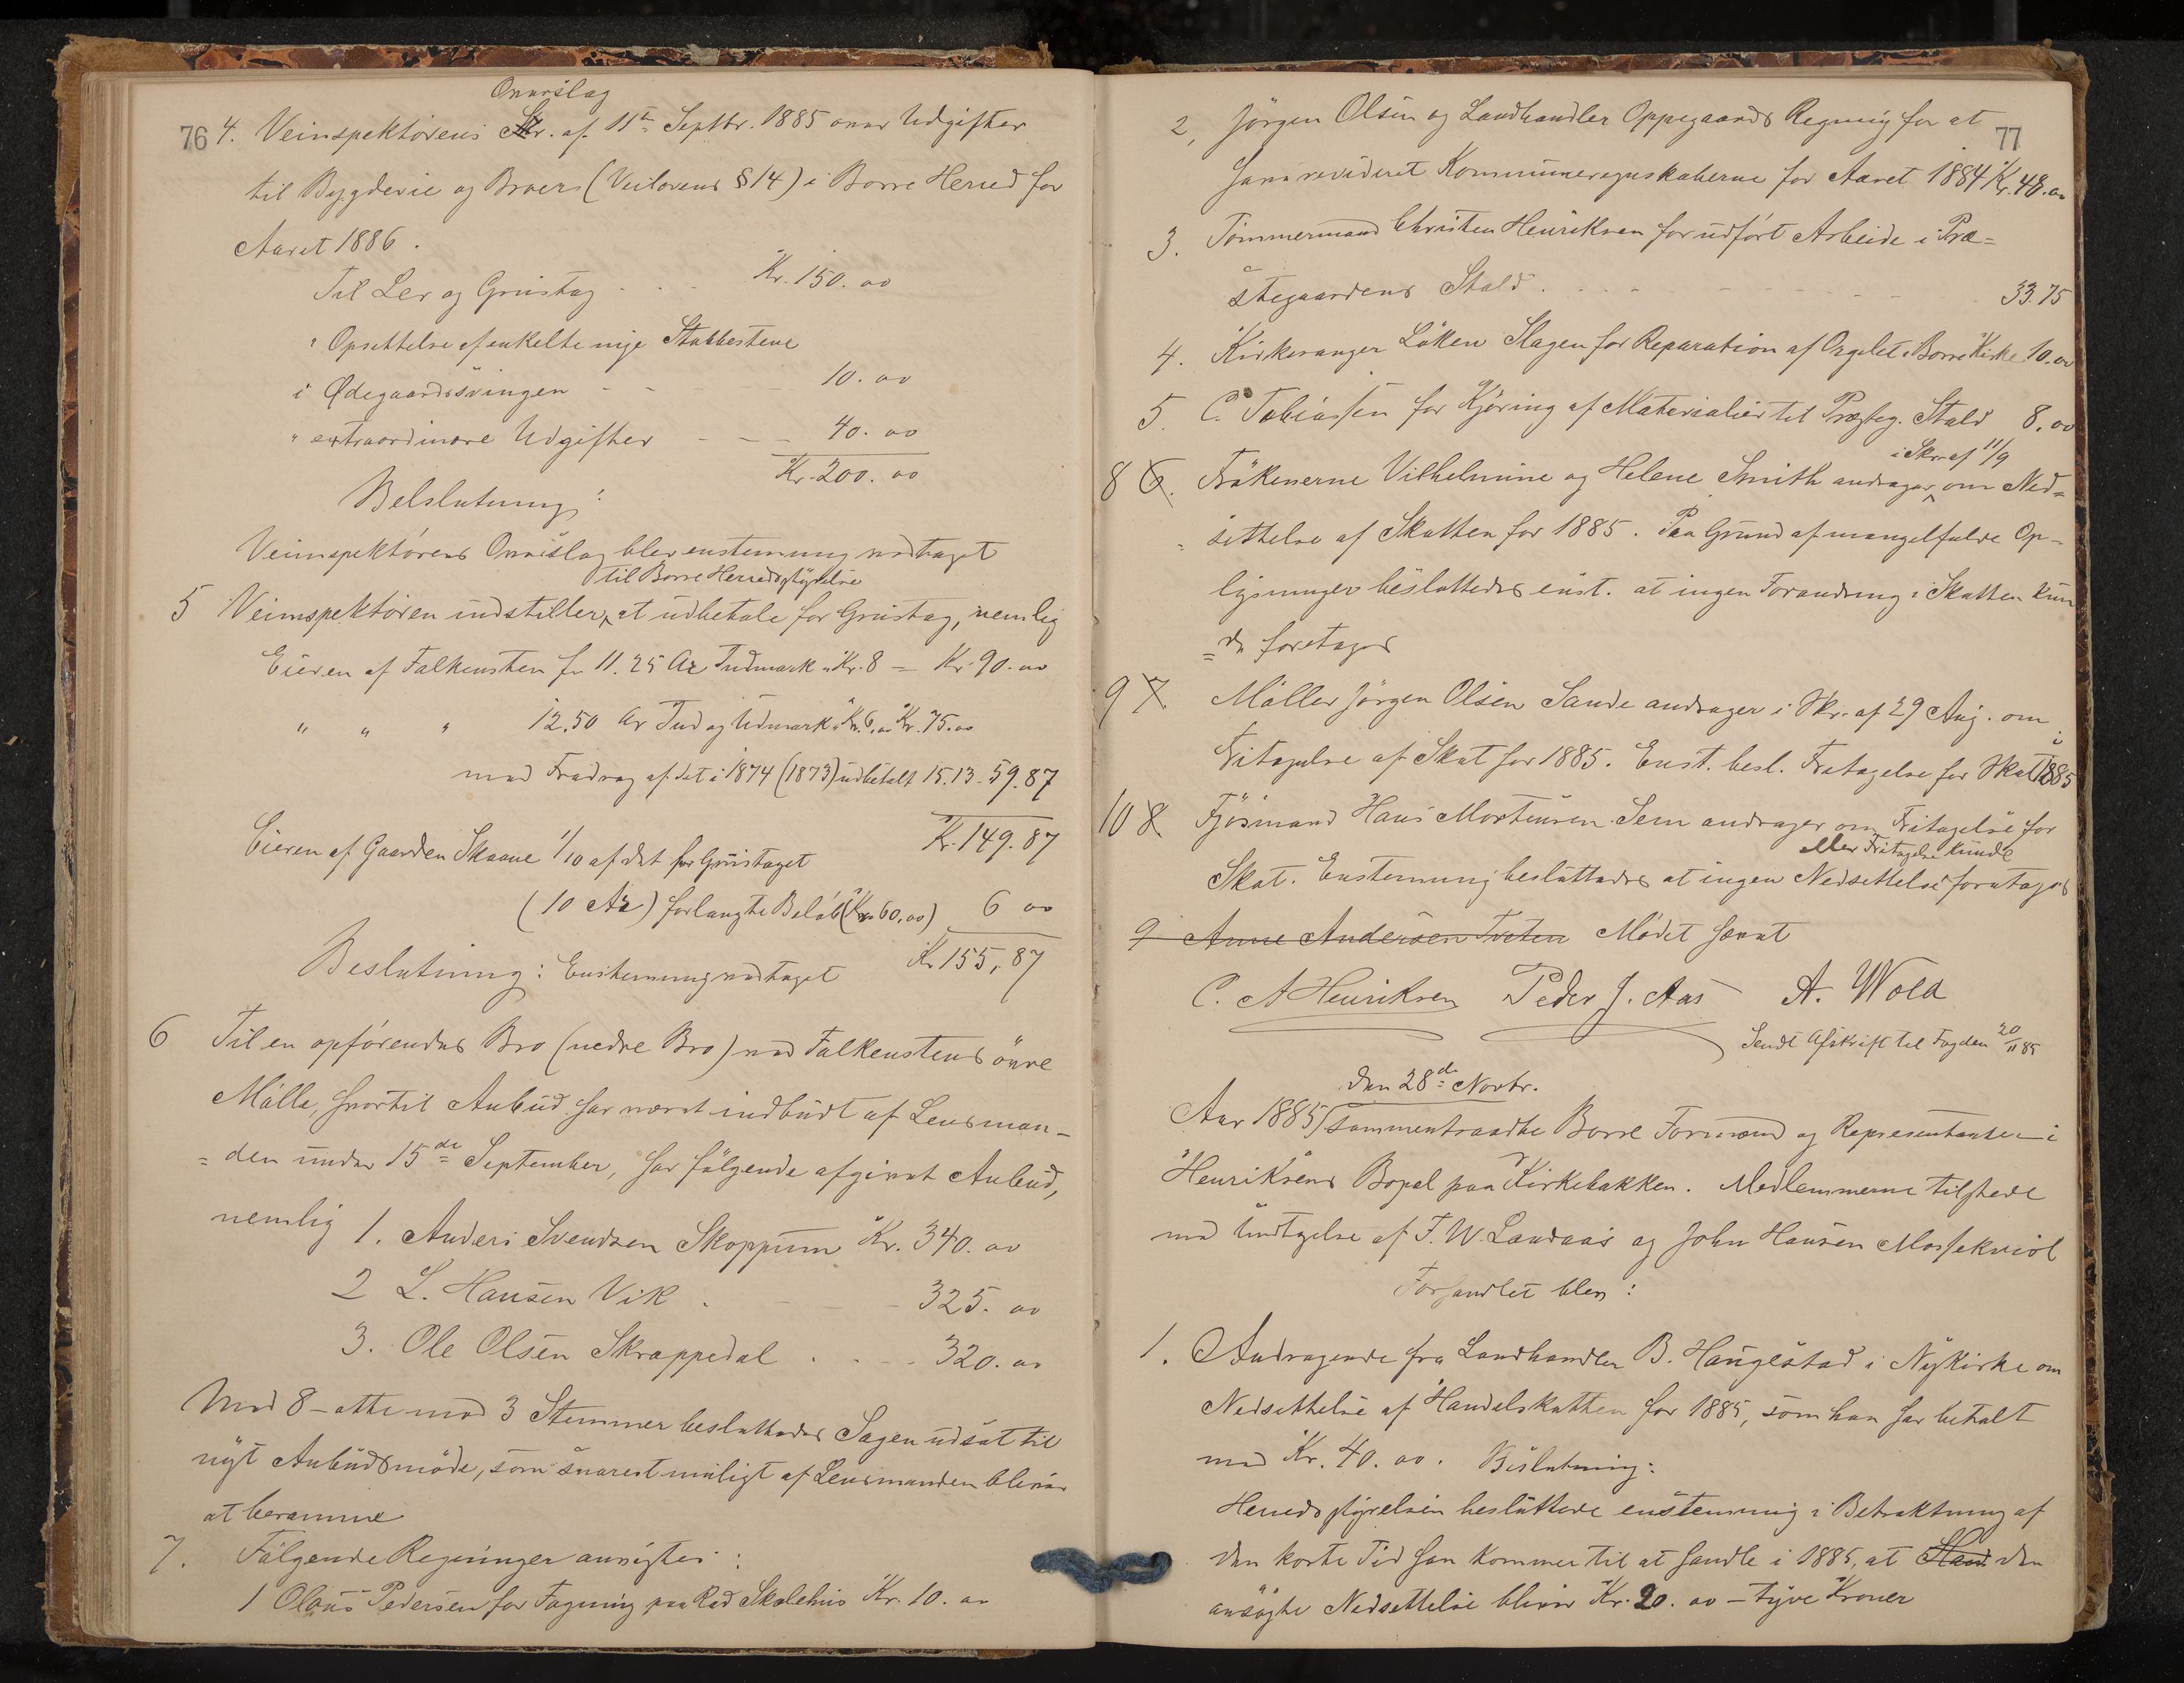 76
Overslag
4. Veinspektörens Skr. af 11te Septbr. 1885 over Udgifter
til Bygdeveie og Broer (Veilovens § 14) i Borre Herred for
Aaret 1886.
Til Ler og Grustag - - - Kr. 150.00
" Opsettelse af enkelte nye Stabbestene
i Ödegaardssvingen - - - 10.00
" extraordinære Udgifter - - - 40.00
Kr. 200.00
Belslutning:
Veinspektörens Overslag blev enstemmig vedtaget
til Borre Herredsstyrelse
5 Veinspektören indstiller, at udbetale for Grustag, nemlig
Eieren af Falkensten for 11.25 Ar Indmark a Kr. 8 = Kr. 90.00
" " " 12.50 Ar Ind og Udmark a Kr. 6.00 Kr. 75.00
med Fradrag af det i 1874 (1873) udbetalt 15.13 - 59.87
Kr. 149.87
Eieren af Gaarden Skaane 1/10 af det for Grustaget
(10 Ar) forlangte Belöb (Kr. 60.00) 6 00
Kr 155,87
Beslutning: Enstemmig vedtaget
6 Til en opförendes Bro (nedre Bro) ved Falkenstens övre
Mölle, hvortil Anbud har været indbudt af Lensman-
=den under 15de September, har fölgende afgivet Anbud,
nemlig 1. Anders Svendsen Skoppum Kr. 340.00
2 L. Hansen Vik . - - - 325.00
3. Ole Olsen Skrappedal . . - - 320.00
Med 8 - otte mod 3 Stemmer besluttedes Sagen udsat til
nyt Anbudsmöde, som snarest muligt af Lensmanden bliver
at beramme
7. Fölgende Regninger anvistes:
1 Olaus Pedersen for Fagning paa Rød Skolehus Kr. 10.00
77
2, Jörgen Olsen og Landhandler Oppegaards Regning for at
have revideret Kommuneregnskaberne for Aaret 1884 Kr. 48.00
3. Tömmermand Christen Henriksen for udfört Arbeide i Præ=
stegaardens Stald . - - - 33.75
4. Kirkesanger Löken Slagen for Reparation af Orgelet i Borre Kirke 10.00
5. C. Tobiassen for Kjöring af Materialier til Præsteg. Stald 8.00
i Skr. af 11/9
8 6. Frökenerne Vilhelmine og Helene Smith andrager om Ned=
=settelse af Skatten for 1885. Paa Grund af mangelfulde Op-
lysninger besluttedes enst. at ingen Forandring i Skatten kun
=de foretages
9 7 Möller Jörgen Olsen Sande andrager i Skr. af 29 Aug. om
Fritagelse af Skat for 1885. Enst. besl. Fritagelse for Skat i 1885
10 8 Fjösmand Hans Mortensen Sem andrager om Fritagelse for
eller Fritagelse kunde
Skat. Enstemmig besluttedes at ingen Nedsettelse foretages
9 Anne Andersen Tveten Mödet hævet
C. A Henriksen Peder J. Aas A. Wold
Sendt Afskrift til Fogden 20/11 85
den 28de Novbr.
Aar 1885 sammentraadte Borre Formænd og Representanter i
Henriksens Bopæl paa Kirkebakken. Medlemmerne tilstede
med Undtagelse af F. W. Landaas og John Hansen Mossekvist
Forhandlet blev:
1. Andragende fra Landhandler B. Haugestad i Nykirke om
Nedsettelse af Handelskatten for 1885, som han har betalt
med Kr. 40.00. Beslutning:
Herredsstyrelsen besluttede enstemmig i Betraktning af
den korte Tid han kommer til at handle i 1885, at den
ansögte Nedsettelse bliver Kr. 20.00 - tyve Kroner